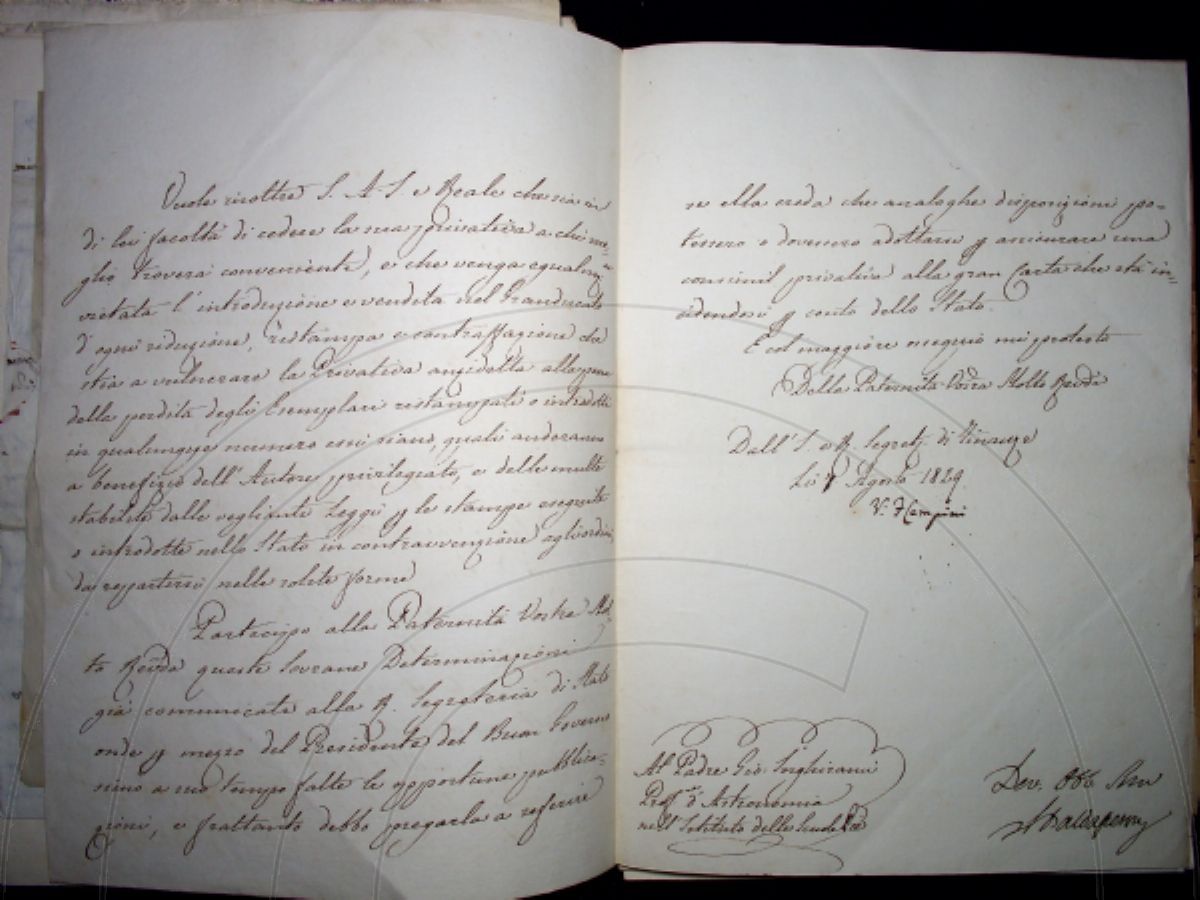 Vuole inoltre S. A. I. e Reale che sia in
di lei facoltà di cedere la sua privativa a chi me-
glio troverà conveniente, e che venga egualm.
vietata l'introduzione e vendita nel Granducato
d'ogni riduzione, ristampa e contraffazione che
stia a vulnerare la Privativa anzidetta alla pena
della perdita degli Esemplari ristampati o introdotti
in qualunque numero essi siano, quali anderanno
a benefizio dell'Autore privilegiato, e delle multe
stabilite dalle veglianti Leggi p le stampe eseguite
o introdotte nello Stato in contravvenzione agli ordini
da repartirsi nelle solite forme
Partecipo alla Paternità Vostra Mol-
to Revda queste Sovrane Determinazioni
già comunicate alla R. Segreteria di Stato
onde p mezzo del Presidente del Buon Governo
siano a suo tempo fatte le opportune pubblica-
zioni, e frattanto debbo pregarla a referire
se ella creda che analoghe disposizioni po-
tessero o dovessero adottarsi p assicurare una
consimil privativa alla gran Carta che stà in-
cidendosi p conto dello Stato.
E col maggiore ossequio mi protesto
Della Paternità Vostra Molto Revda
Dall'I. e R. Segret. di Finanze
Li 7 Agosto 1829
Al Padre Gio. Inghirami
Prof. d'Astronomia
nell'Istituto delle Scuole Pie
Dev. Obb. Serv